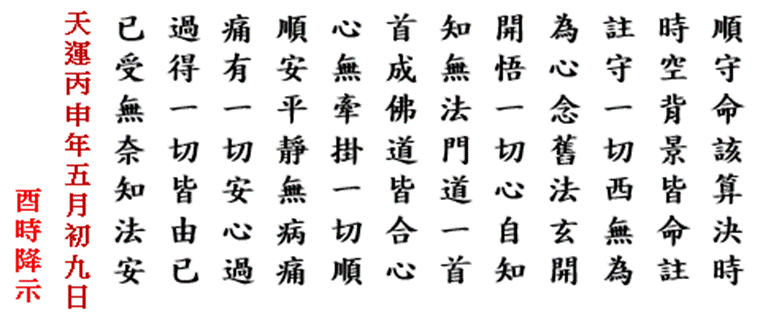 順守命該算決時
時空背景皆命註
註守一切西無為
為心念舊法玄開
開悟一切心自知
知無法門道一首
首成佛道皆合心
心無牽掛一切順
順安平靜無病痛
痛有一切安心過
過得一切皆由已
已受無奈知法安
天運丙申年五月初九日
酉時降示